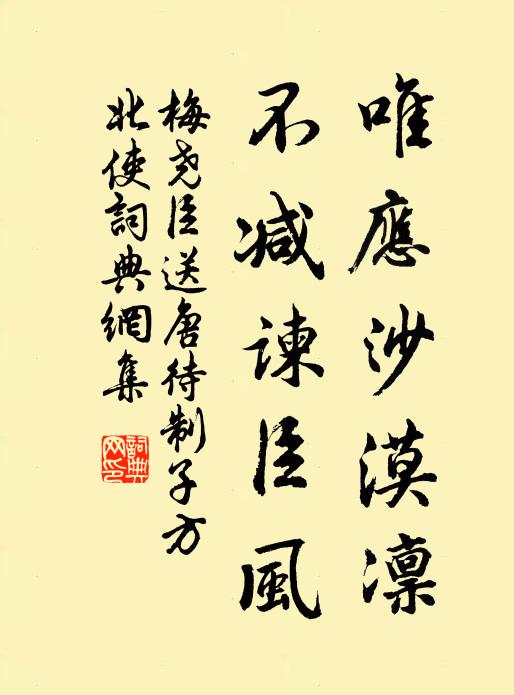 唯應沙漠凛
不减諫臣風
梅堯臣送唐待制子方
北使詞典網集
詞典
网印